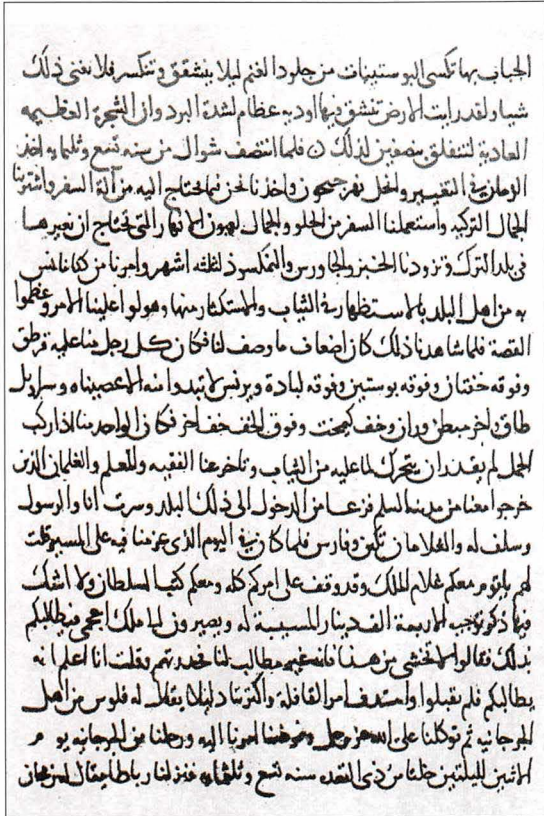 الجباب بها تكسى البوستينات من جلود الغنم ليلا ينشقق وتنكسر فلا يغنى ذلك
شيا ولقد رايت الارض تنشق فيها اودية عظام لشدة البرد وان الشجرة العظيمة
العادية لتنفلق بنصفين لذلك ن فلما انتصف شوال من سنه تسع وثلثمايه اخذ
الزمان في التغيير وانحل نهر جيحون واخذنا نحن فيما نحتاج اليه من آلة السفر واشترينا
الجمال التركيه واستعملنا السفر من الجلود الجمال لعبور الانهار التى نحتاج ان نعبرها
فى بلد الترك وتزودنا الخبز والجاورس والنمكسوذ لثلثه اشهر وامرنا من كنا نانس
به من اهل البلد بالاستظهار في الثياب والاستكثار منها وهولوا علينا الامر وعظموا
القصة فلما شاهدنا ذلك كان اضعاف ما وصف لنا فكان كل رجل منا عليه قرطق
وفوقه خفتان وفوقه بوستين وفوقه لبادة وبرنس لا تبدوا منه الا عيناه وسراويل
طاق واخر مبطن وران وخف كيمخت وفوق الخف خف اخر فكان الواحد منا اذا ركب
الجمل لم يقدر ان يتحرك لما عليه من الثياب وتاخر عنا الفقيه والمعلم والغلمان الذين
خرجوا معنا من مدينه السلم فزعا من الدخول الى ذلك البلد وسرت انا والرسول
وسلف له والغلامان تكين وفارس فلما كان في اليوم الذى عزمنا فيه على المسير قلت
لهم يا قوم معكم غلام الملك وقد وقف على امركم كله ومعكم كتب السلطان ولا اشك
فيها ذكر توجيه الاربعة الف دينار المسيبية له ويصيرون الى ملك اعجمى فيطالبكم
بذلك فقالوا لا تخشى من هذا فانه غير مطالب لنا فحذرتهم وقلت انا اعلم انه
يطالبكم فلم يقبلوا واستدف امر القافلة واكترينا دليلا يقال له قلوس من اهل
الجرجانيه ثم توكلنا على الله عز وجل وفوضنا امرنا اليه ورحلنا من الجرجانيه يوم
الاثنين لليلتين خلتا من ذى القعده سنه تسع وثلثمايه فنزلنا رباطا يقال له زمجان